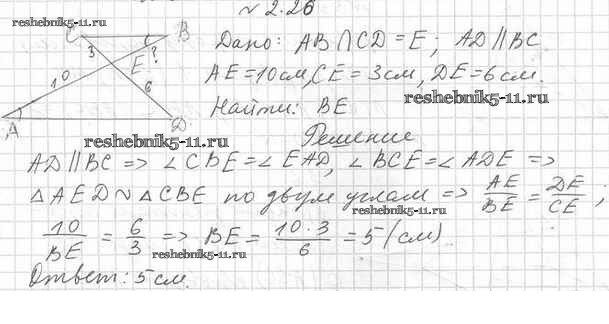 № 2.26
reshebnik5-11.ru
C B
3 E ?
10 6
A D
Дано: AB ∩ CD = E; AD ∥ BC
AE = 10 см, CE = 3 см, DE = 6 см.
reshebnik5-11.ru
Найти: BE
reshebnik5-11.ru
Решение
AD ∥ BC => ∠ CBE = ∠ EAD, ∠ BCE = ∠ ADE =>
△ AED ~ △ CBE по двум углам => AE/BE = DE/CE;
reshebnik5-11.ru
10/BE = 6/3 => BE = 10·3/6 = 5 (см)
reshebnik5-11.ru
Ответ: 5 см.